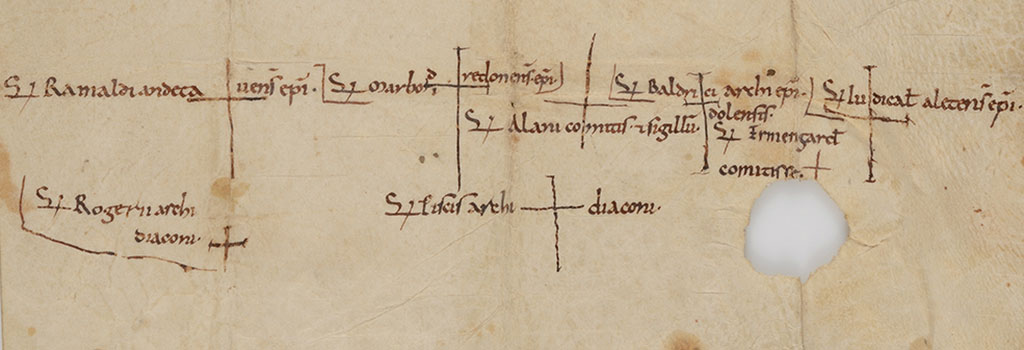 S Rainaldi andecavensis epi.
S Marbodi redonensis epi.
S Baldrici archiepi. dolensis.
S Iudicaℓ aletensis epi.
S Alani comitis & sigillu.
S Ermengard
comitisse.
S Rogerii archi
diaconi.
S archi diaconi.